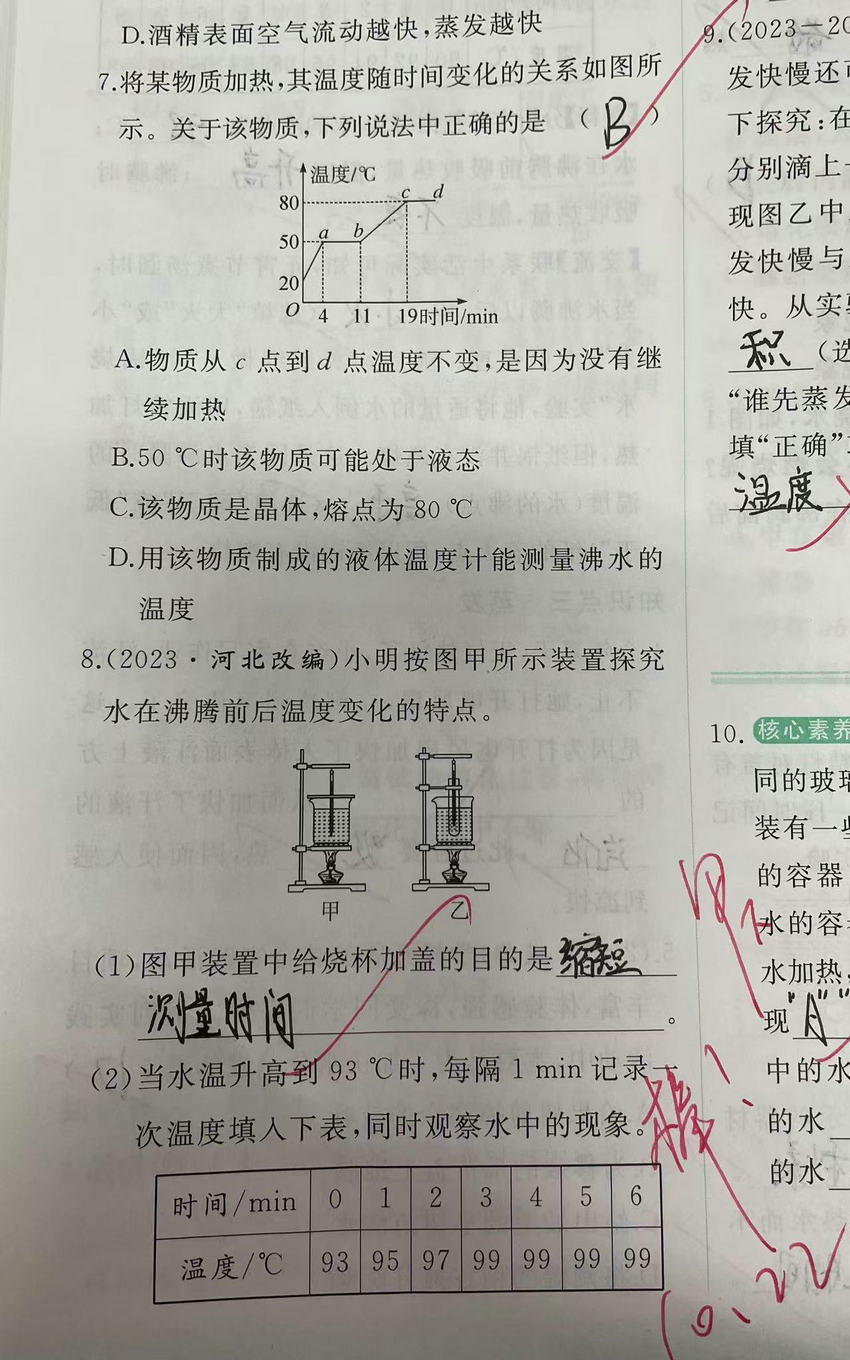 D.酒精表面空气流动越快,蒸发越快
7.将某物质加热,其温度随时间变化的关系如图所
示。关于该物质,下列说法中正确的是 ( B )
温度/℃
80
50
20
O
a
b
c
d
4 11 19 时间/min
A.物质从 c 点到 d 点温度不变,是因为没有继
续加热
B.50 ℃时该物质可能处于液态
C.该物质是晶体,熔点为 80 ℃
D.用该物质制成的液体温度计能测量沸水的
温度
8.(2023·河北改编)小明按图甲所示装置探究
水在沸腾前后温度变化的特点。
甲 乙
(1)图甲装置中给烧杯加盖的目的是缩短
测量时间。
(2)当水温升高到 93 ℃时,每隔 1 min 记录一
次温度填入下表,同时观察水中的现象。
时间/min 0 1 2 3 4 5 6
温度/℃ 93 95 97 99 99 99 99
9.(2023-20
发快慢还可
下探究:在
分别滴上一
现图乙中
发快慢与
快。从实验
积 (选
“谁先蒸发
填“正确”
温度
10. 核心素养
同的玻璃
装有一些
的容器
水的容
水加热,
现“A”
中的水
的水
的水
10、22